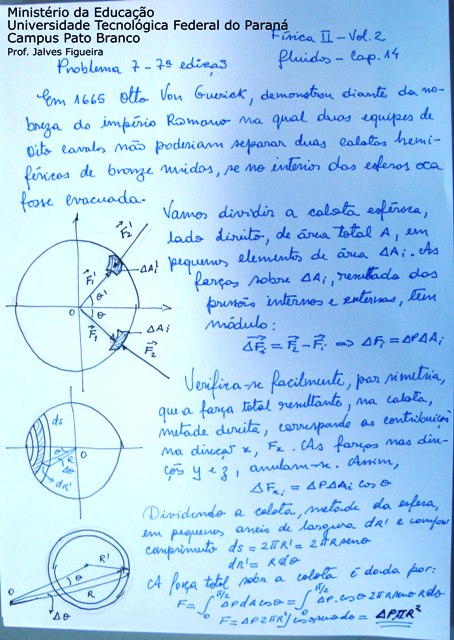 Ministério da Educação
Universidade Tecnológica Federal do Paraná
Campus Pato Branco
Prof. Jalves Figueira
Física II - Vol. 2
fluidos - Cap. 14
Problema 7 - 7ª edição
Em 1665 Otto Von Guerick, demonstrou diante da no-
breza do império Romano na qual duas equipes de
oito cavalos não poderiam separar duas calotas hemi-
féricas de bronze unidas, se no interior das esferas oca
fosse evacuada.
Vamos dividir a calota esférica,
lado direito, de área total A, em
pequenos elementos de área ΔAi. As
forças sobre ΔAi, resultado das
pressões internas e externas, tem
módulo:
ΔFi = F2 - Fi => ΔFi = ΔPΔAi
F2'
F1'
ΔAi'
θ
O
θ
F1
ΔAi
F2
Verifica-se facilmente, por simetria,
que a força total resultante, na calota,
metade direita, corresponde as contribuições
na direção x, Fx. As forças nas dire-
ções y e z, anulam-se. Assim,
ΔFxi = ΔPΔAi cos θ
ds
θ
R
O
Δθ
dR'
Dividindo a calota, metade da esfera,
em pequenos aneis de largura dR' e compri
comprimento ds = 2πR' = 2πR senθ
dR' = R dθ
A força total sobre a calota é dada por:
F = ∫0^π/2 ΔP dA cos θ = ∫0^π/2 ΔP. cos θ 2πR senθ R dθ
F = ΔP 2πR² ∫ cos θ senθ dθ = ΔPπR²
R'
θ
R
O
Δθ